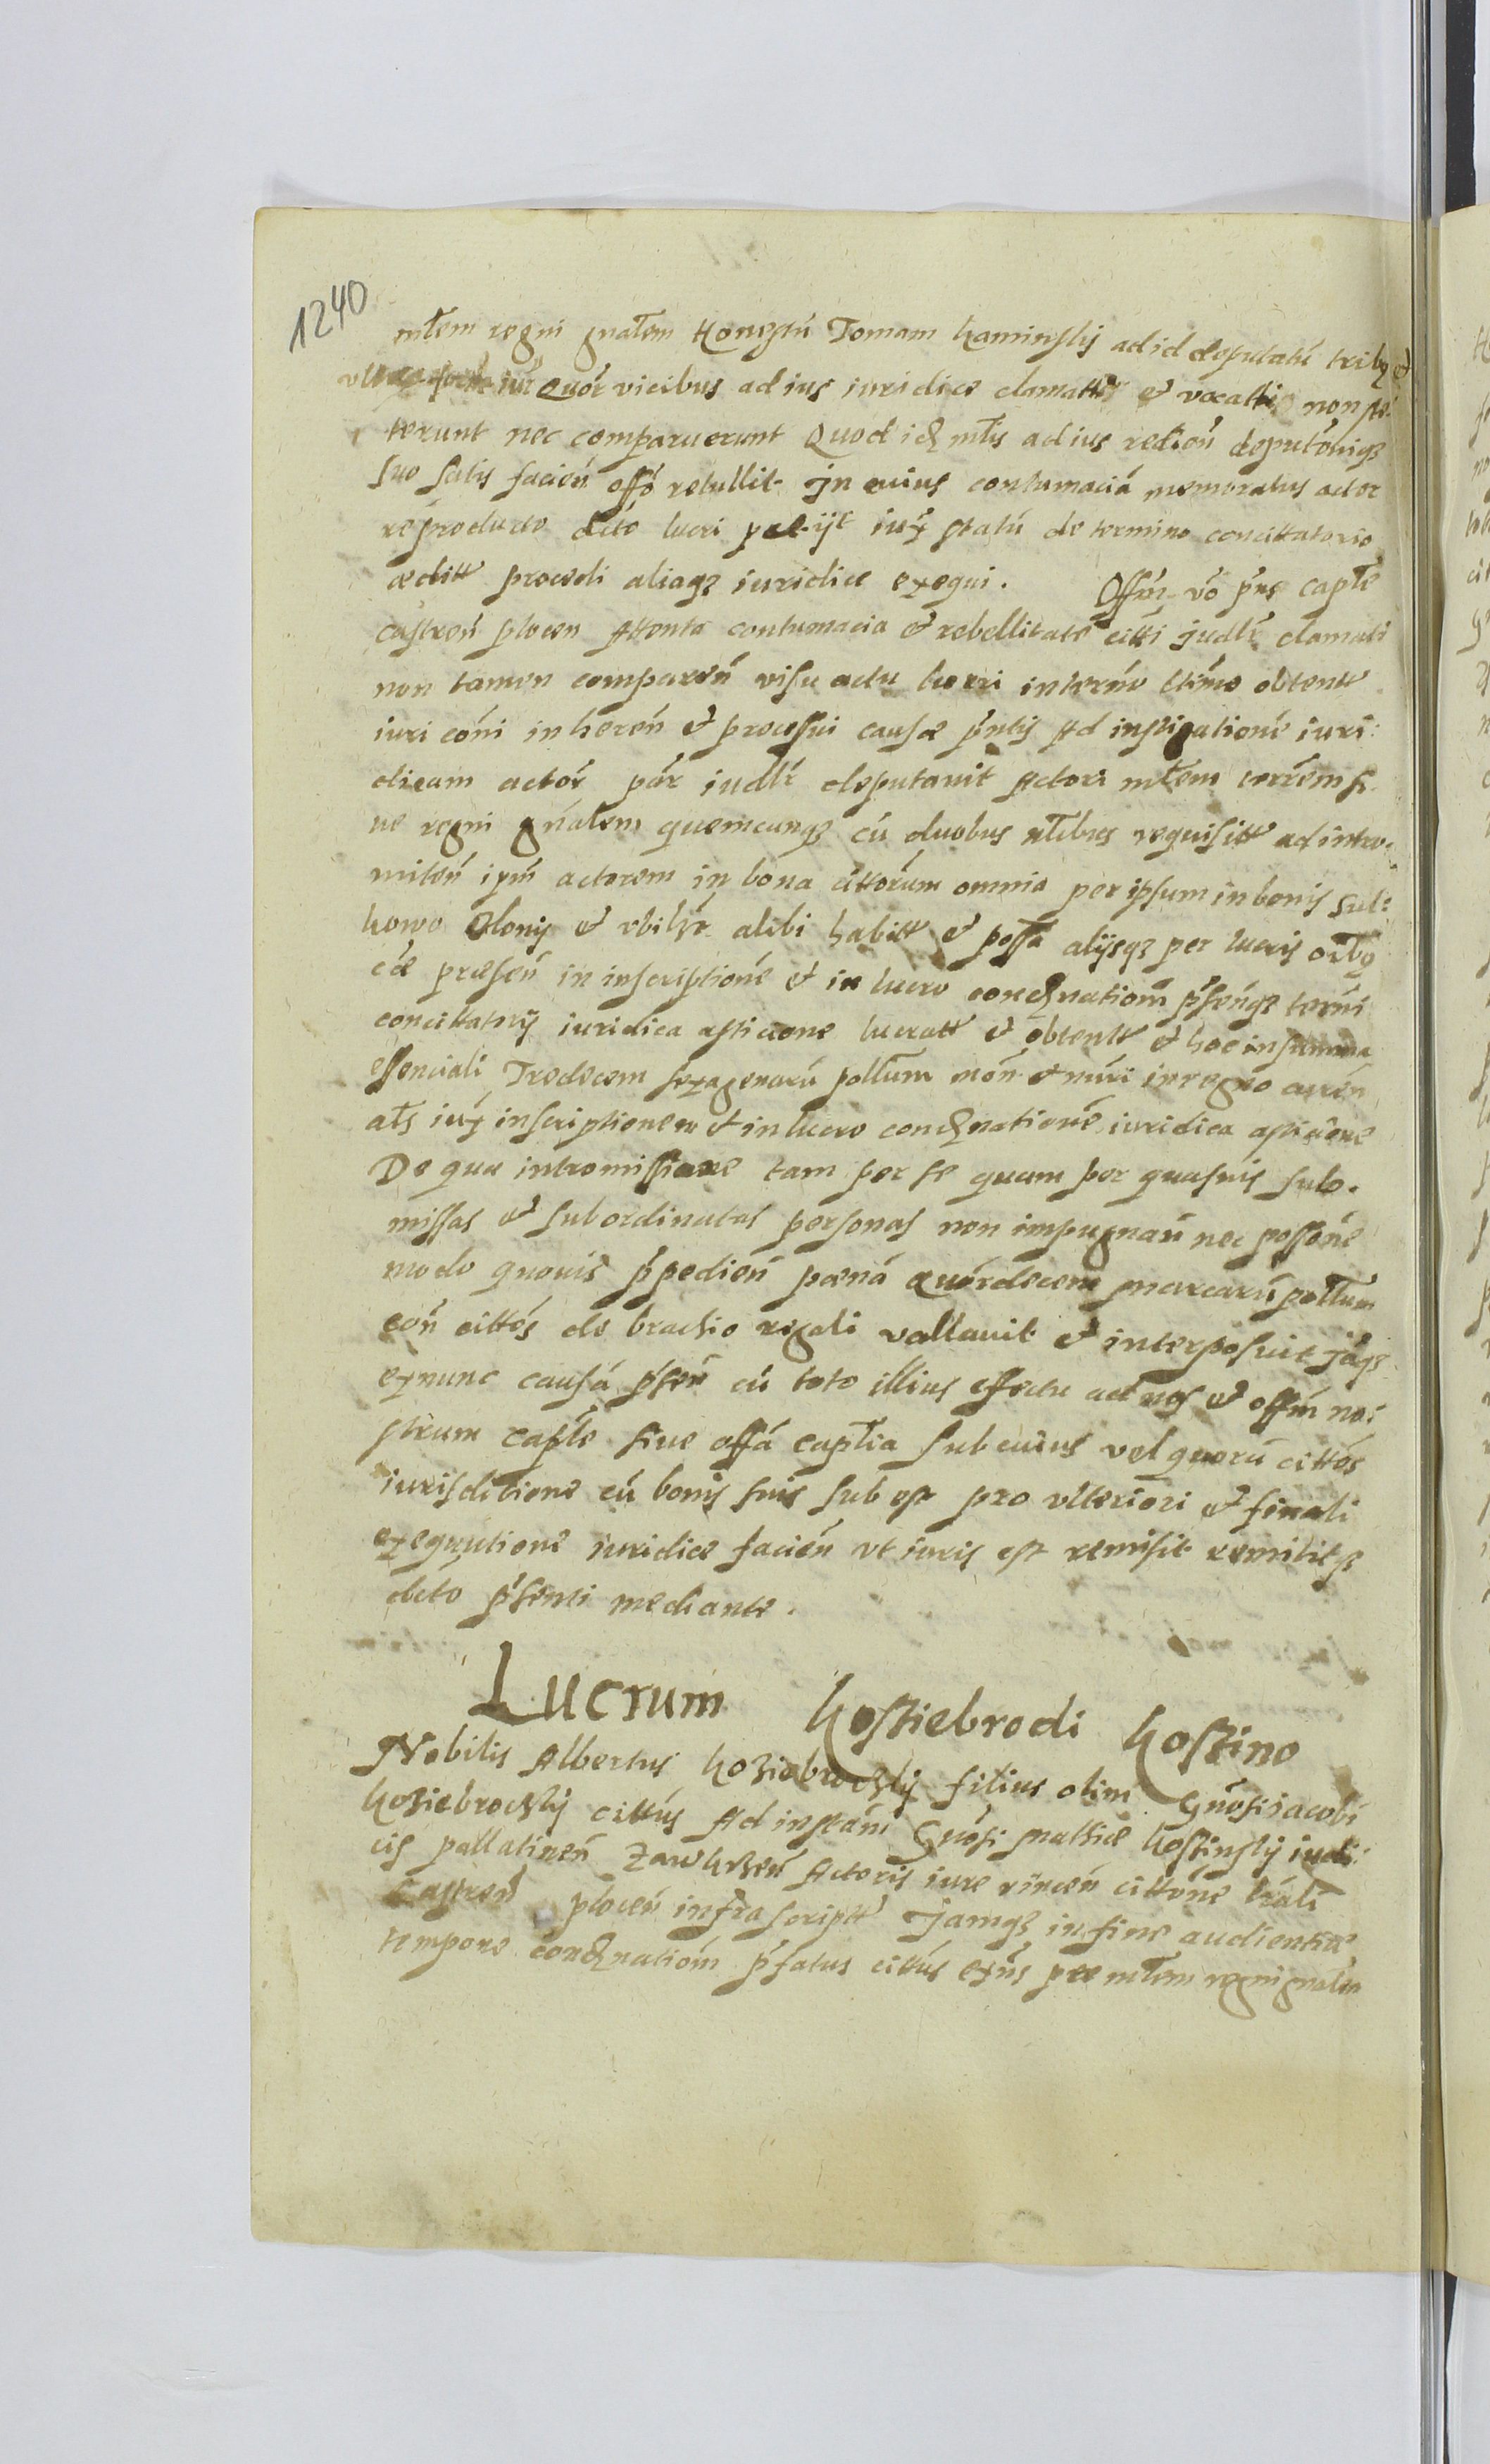 1240
młem regni gnałem Honestũ Tomam Kaminskij ad id deputatũ tribq et
iur̃ Quor̃ vicibus ad ius iuridice clamatt et vocatti non ste:
terunt nec comparuerunt Quod id młis ad ius redieñ deputõniq3
suo satis facień offõ retullit Jn cuius contumaciã memoratus actor
reproducto dctõ lucri petijt iux statũ de termino concittatorio
æditt procedi aliaq3 iuridice exequi. Offm̃ võ pñs capłe
castreñ plocen Attenta contumacia et rebellitate citti judlr̃ clamati
non tamen compareñ viso actu lucri in termĩo ltimo obtentt
iuri cõni inhereñ et processui causæ pñtis Ad instigationẽ iuri:
dicam actor̃ par̃ iudlr̃ deputavit Actori młem terrẽm si
ue regni gnałem quemcunq3 cũ duobus nłibus requisitt ad intro:
miteñ ipm̃ actorem in bona cittorum omnia per ipsum in bonis Sul:
kowo Olonij et vbilzt alibi habitt et possa alijsq3 per lucris oĩbq
cæ præseñ in inscriptionẽ et in lucro condnationũ pñsenq3 termĩ
concittatorij iuridica asticione lucratt et obtentt et hoc in summa
essenciali Tredecem sexagenarũ pollum moñ et nũri in regno curreñ
ałs iux inscriptionem et in lucro condnationẽ iuridica asticione
De qua intromissione tam per se quam per quasuis sub:
missas et subordinatas personas non impugnañ nec possõne
modo quouis ppedieñ pænã quordecem marcarũ pollum
coñ cittos de brachio regali vallauit et interposuit jaq3
exnunc causã pseñ cũ toto illius effectu ad nos et offm̃ no:
strum capłe siue offã captia sub cuius vel quorũ cittos
iurisditione cũ bonis suis sub est pro vlteriori et finali
exequutione iuridice facieñ vt iuris est remisit remititq3
dcto psenti mediante.
Lucrum Kosziebrodi Kostino
Nobilis Albertus Koziebrodzkij filius olim Gñosi jacobi
Koziebrodzkij cittus Ad instãm Gñosi Mathiæ Kostinskij iudi:
cis pallatineñ Zawkrzeñ Actoris iure vinceñ cittõne lrãli
Castreñploceñ infra scriptt Jamq3 in fine audientiæ
tempore condnationũ pfatus cittus exñs per młem regni gnałem